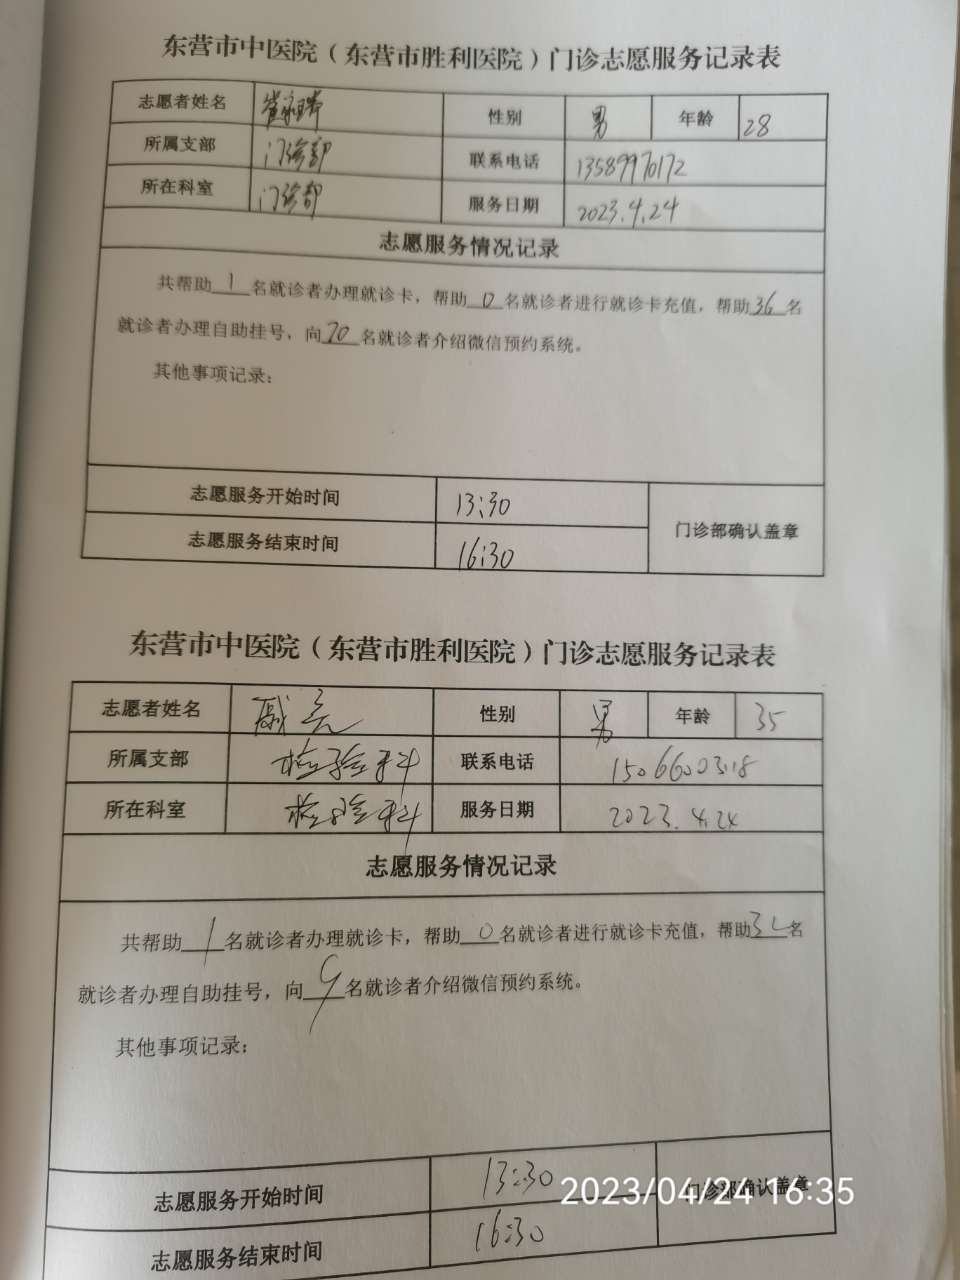 东营市中医院（东营市胜利医院）门诊志愿服务记录表
志愿者姓名 性别 男 年龄 28
所属支部 门诊部 联系电话 13589970172
所在科室 门诊部 服务日期 2023.4.24
志愿服务情况记录
共帮助1名就诊者办理就诊卡，帮助0名就诊者进行就诊卡充值，帮助36名
就诊者办理自助挂号，向70名就诊者介绍微信预约系统。
其他事项记录：
志愿服务开始时间 13:30
门诊部确认盖章
志愿服务结束时间 16:30
东营市中医院（东营市胜利医院）门诊志愿服务记录表
志愿者姓名 性别 男 年龄 35
所属支部 检验科 联系电话 15066003318
所在科室 检验科 服务日期 2023.4.24
志愿服务情况记录
共帮助1名就诊者办理就诊卡，帮助0名就诊者进行就诊卡充值，帮助32名
就诊者办理自助挂号，向9名就诊者介绍微信预约系统。
其他事项记录：
志愿服务开始时间 13:30
门诊部确认盖章
2023/04/24 16:35
志愿服务结束时间 16:30